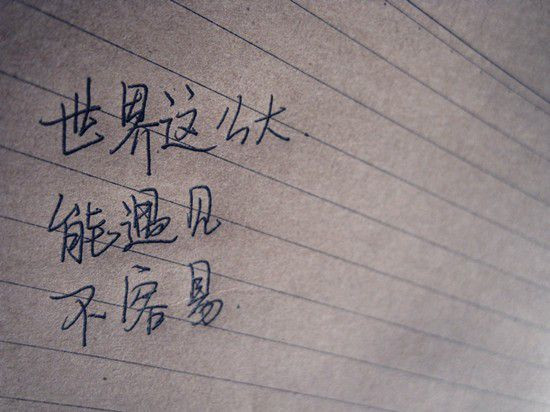 世界这么大.
能遇见
不容易.